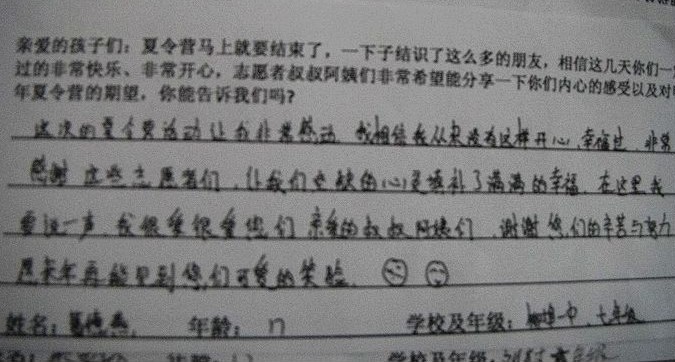 亲爱的孩子们：夏令营马上就要结束了，一下子结识了这么多的朋友，相信这几天你们一
过的非常快乐、非常开心，志愿者叔叔阿姨们非常希望能分享一下你们内心的感受以及对
年夏令营的期望，你能告诉我们吗？
这次的夏令营活动让我非常感动，我相信我从来没有这样开心、幸福过，非常
感谢这些志愿者们，让我们空缺的心灵填补了满满的幸福，在这里我
要说一声，我很爱很爱您们亲爱的叔叔阿姨们，谢谢您们的辛苦与努力
愿来年再能见到您们可爱的笑脸
姓名： 年龄：17 学校及年级： 一中、七年级
学校及年级：